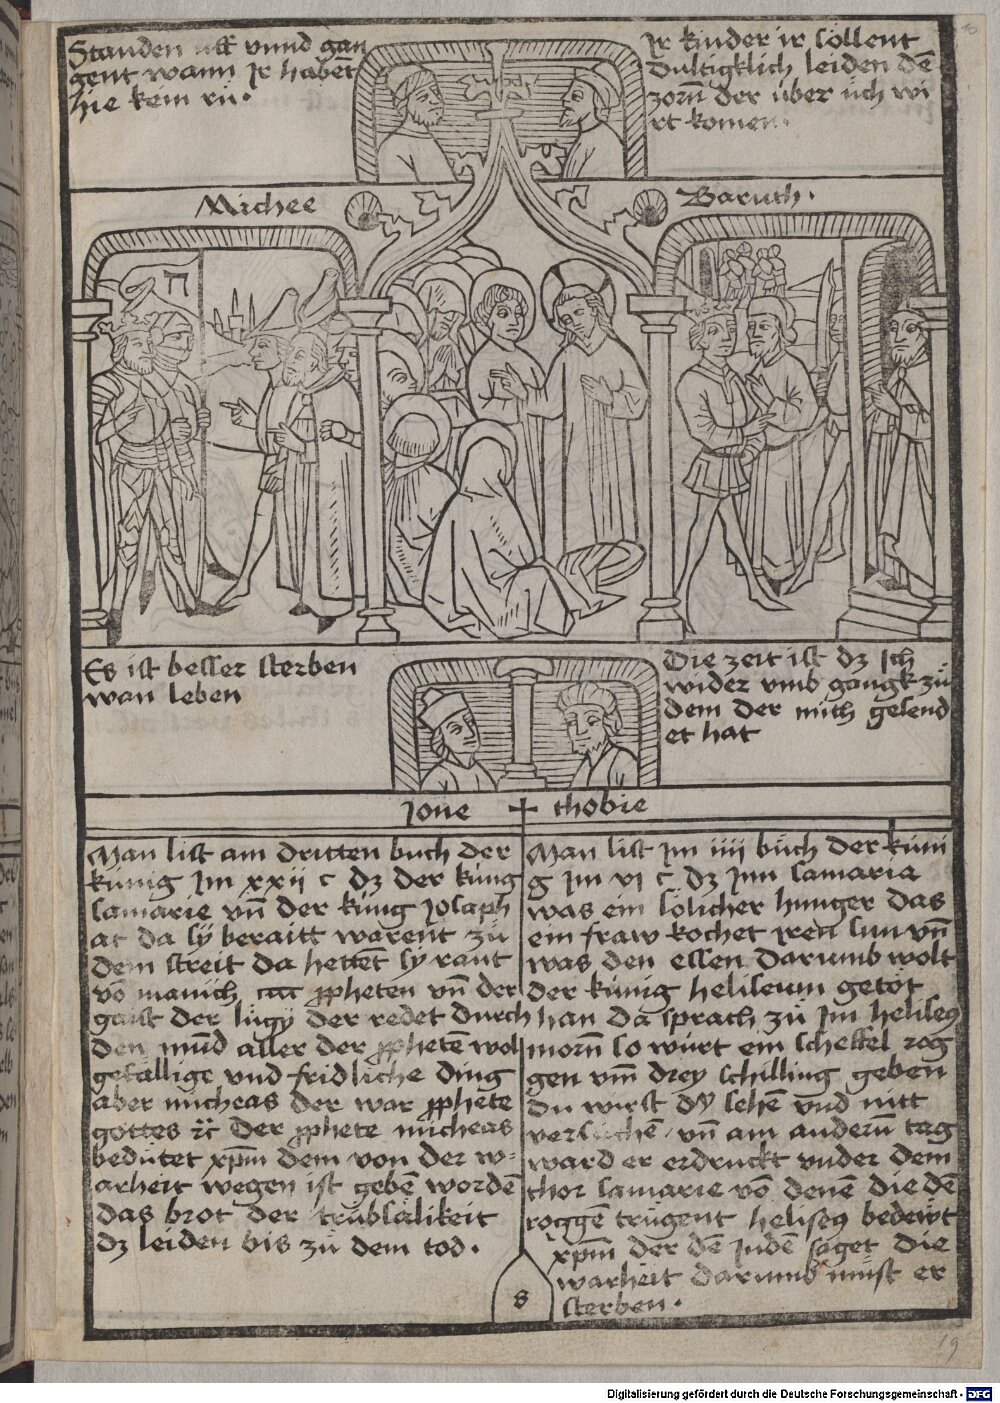 Standen uff vnnd gan
gent wann Ir haben̄
hie kein rů.
Ir kinder ir söllent
dultigklich leiden dē
zorn̄ der über uch wi
rt komen.
Michee
Baruch.
Es ist besser sterben
wan leben
Die zeit ist dz Ich
wider vmb gangk zů
dem der mich gesend
et hat
Jone + thobie
Man list am dritten buch der
künig Im xxij c dz der küng
samarie vn̄ der küng Josaph
at da sÿ beraitt warent zů
dem streit da hetten̄ sy rant
vō manich cccc ꝓpheten vn̄ der
gaist der lügÿ der redet durch
den mūd aller der ꝓphetē wol
gefällige vnd fridliche ding
aber micheas der war ꝓphete
gottes ꝛc̄ Der ꝓphete micheas
bedütet xp̄m dem von der w=
arheit wegen ist gebē wordē
das brot der trübsälikeit
dz leiden bis zů dem tod.
Man list Im iiij bůch der küni
g Im vi c dz Inn samaria
was ein sölicher hunger das
ein fraw kochet Iren sun vn̄
was den essen Darumb wolt
der künig heliseum getöt
han da sprach zů Im heliseꝰ
morn̄ so würt ein scheffel rog
gen vm̄ drey schilling geben
du wirst dÿ sehē vnd nitt
versůchē vn̄ am andern̄ tag
ward er erdruckt vnder dem
thor samarie vō denē die dē
roggē trůgent heliseꝰ bedewt
xp̄m der dē Judē saget die
warheit darumb můst er
sterben.
s
19
Digitalisierung gefördert durch die Deutsche Forschungsgemeinschaft - DFG